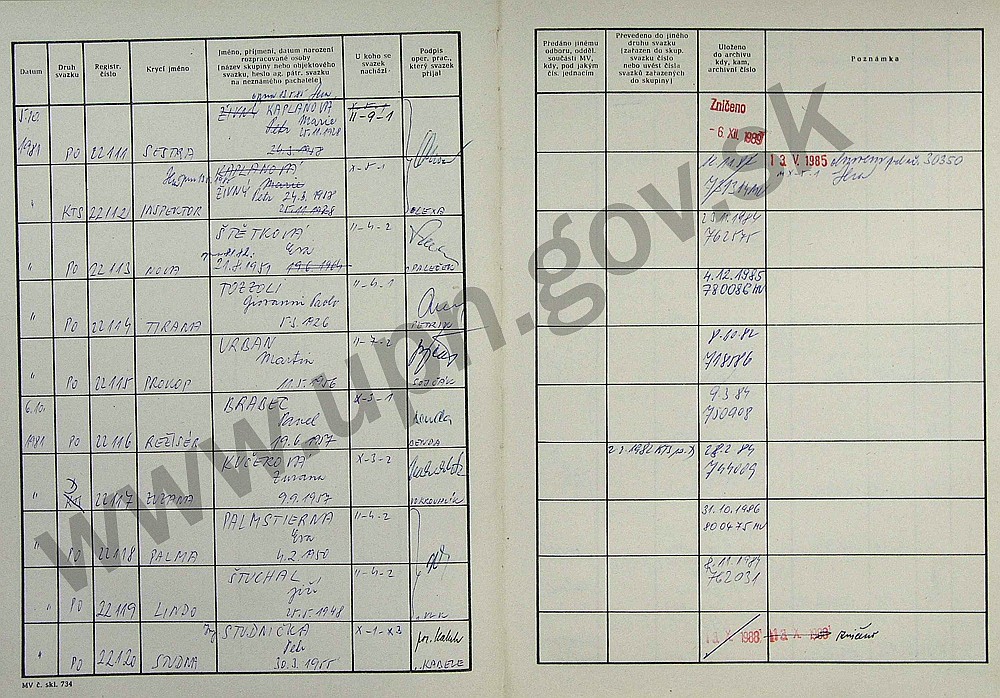 Datum
Druh svazku
Registr. číslo
Krycí jméno
Jméno, příjmení, datum narození rozpracované osoby (název skupiny nebo objektového svazku, heslo ag. pátr. svazku na neznámého pachatele)
U koho se svazek nachází
Podpis oper. prac., který svazek přijal
Předáno jinému odboru, odděl. součásti MV, kdy, pod jakým čís. jednacím
Převedeno do jiného druhu svazku (zařazen do skup. svazku číslo nebo uvést čísla svazků zařazených do skupiny)
Uloženo do archivu kdy, kam, archivní číslo
Poznámka
5.10. 1981 PO 22111 SESTRA ŽIVNÝ KAPLANOVÁ Petr Marie 25.11.1928 24.3.1918 X-5-1 II-9-1
Zničeno
- 6. XII. 1989
" KTS 22112 INSPEKTOR KAPLANOVÁ Marie ŽIVNÝ Petr 24.3.1918 25.11.1928 X-5-1 OLEXA
1 3. V. 1985 30350
" PO 22113 NOVA ŠTĚTKOVÁ Eva 21.8.1951 19.6.1964 II-4-2 PALEČEK
23.11.1984
762575
" PO 22114 TIRANA TOZZOLI Giovanni Paolo 5.3.1926 II-4-1 PETRIK
4.12.1985
780086 MV
" PO 22115 PROKOP URBAN Martin 11.5.1956 II-7-2 SOJČÁK
8.10.82
718586
6.10. 1981 PO 22116 REŽISÉR BRABEC Pavel 19.6.1957 X-3-1 BENDA
9.3.84
750908
" KTS 22117 ZUZANA KUČEKOVÁ Zuzana 9.9.1957 X-3-2
28.2.84
744089
" PO 22118 PALMA PALMSTIERNA Eva 4.2.1950 II-4-2
31.10.1986
800475 MV
" PO 22119 LINDO ŠTUCHAL Jiří 25.5.1948 II-4-2
8.11.1984
762031
" PO 22120 STUDNA Ing STUDNIČKA Petr 30.3.1955 X-1-X3 KABELE
1 3. X. 1988 zničeno
MV č. skl. 734
www.upn.gov.sk